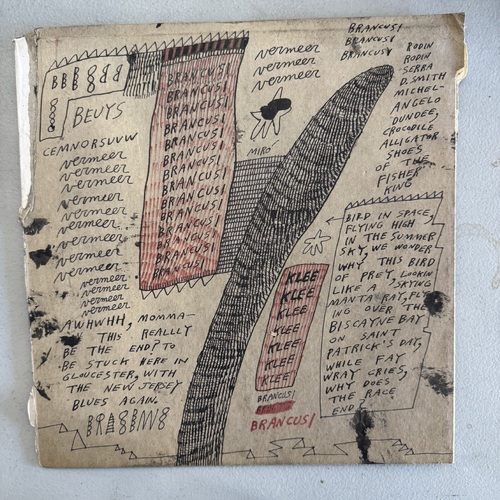 BEUYS
CEMNORSUVW
vermeer
vermeer
vermeer
vermeer
vermeer
vermeer
vermeer
vermeer
vermeer
vermeer
vermeer
AWHWHH, MOMMA-
IS THIS REALLLY
BE THE END? TO
BE STUCK HERE IN
GLOUCESTER, WITH
THE NEW JERSEY
BLUES AGAIN.
BRANCUSI
BRANCUSI
BRANCUSI
BRANCUSI
BRANCUSI
BRANCUSI
BRANCUSI
BRANCUSI
BRANCUSI
BRANCUSI
BRANCUSI
BRANCUSI
BRANCUSI
vermeer
vermeer
vermeer
MIRO
BRANCUSI
BRANCUSI
BRANCUSI
RODIN
RODIN
SERRA
D. SMITH
MICHEL-
ANGELO
DUNDEE,
CROCODILE
ALLIGATOR
SHOES
OF THE
FISHER
KING
BIRD IN SPACE,
FLYING HIGH
IN THE SUMMER
SKY, WE WONDER
WHY THIS BIRD
OF PREY, LOOKIN
LIKE A SKYING
MANTA RAY, FLY-
ING OVER THE
BISCAYNE BAY
ON SAINT
PATRICK'S DAY,
WHILE FAY
WRAY CRIES,
WHY DOES
THE RACE
END
KLEE
KLEE
KLEE
KLEE
KLEE
KLEE
KLEE
BRANCUSI
BRANCUSI